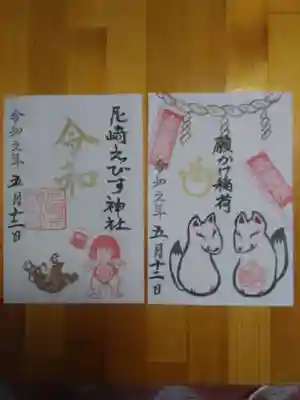 尼崎えびす神社
令和
令和元年 五月十二日
願かけ稲荷
令和元年 五月十二日